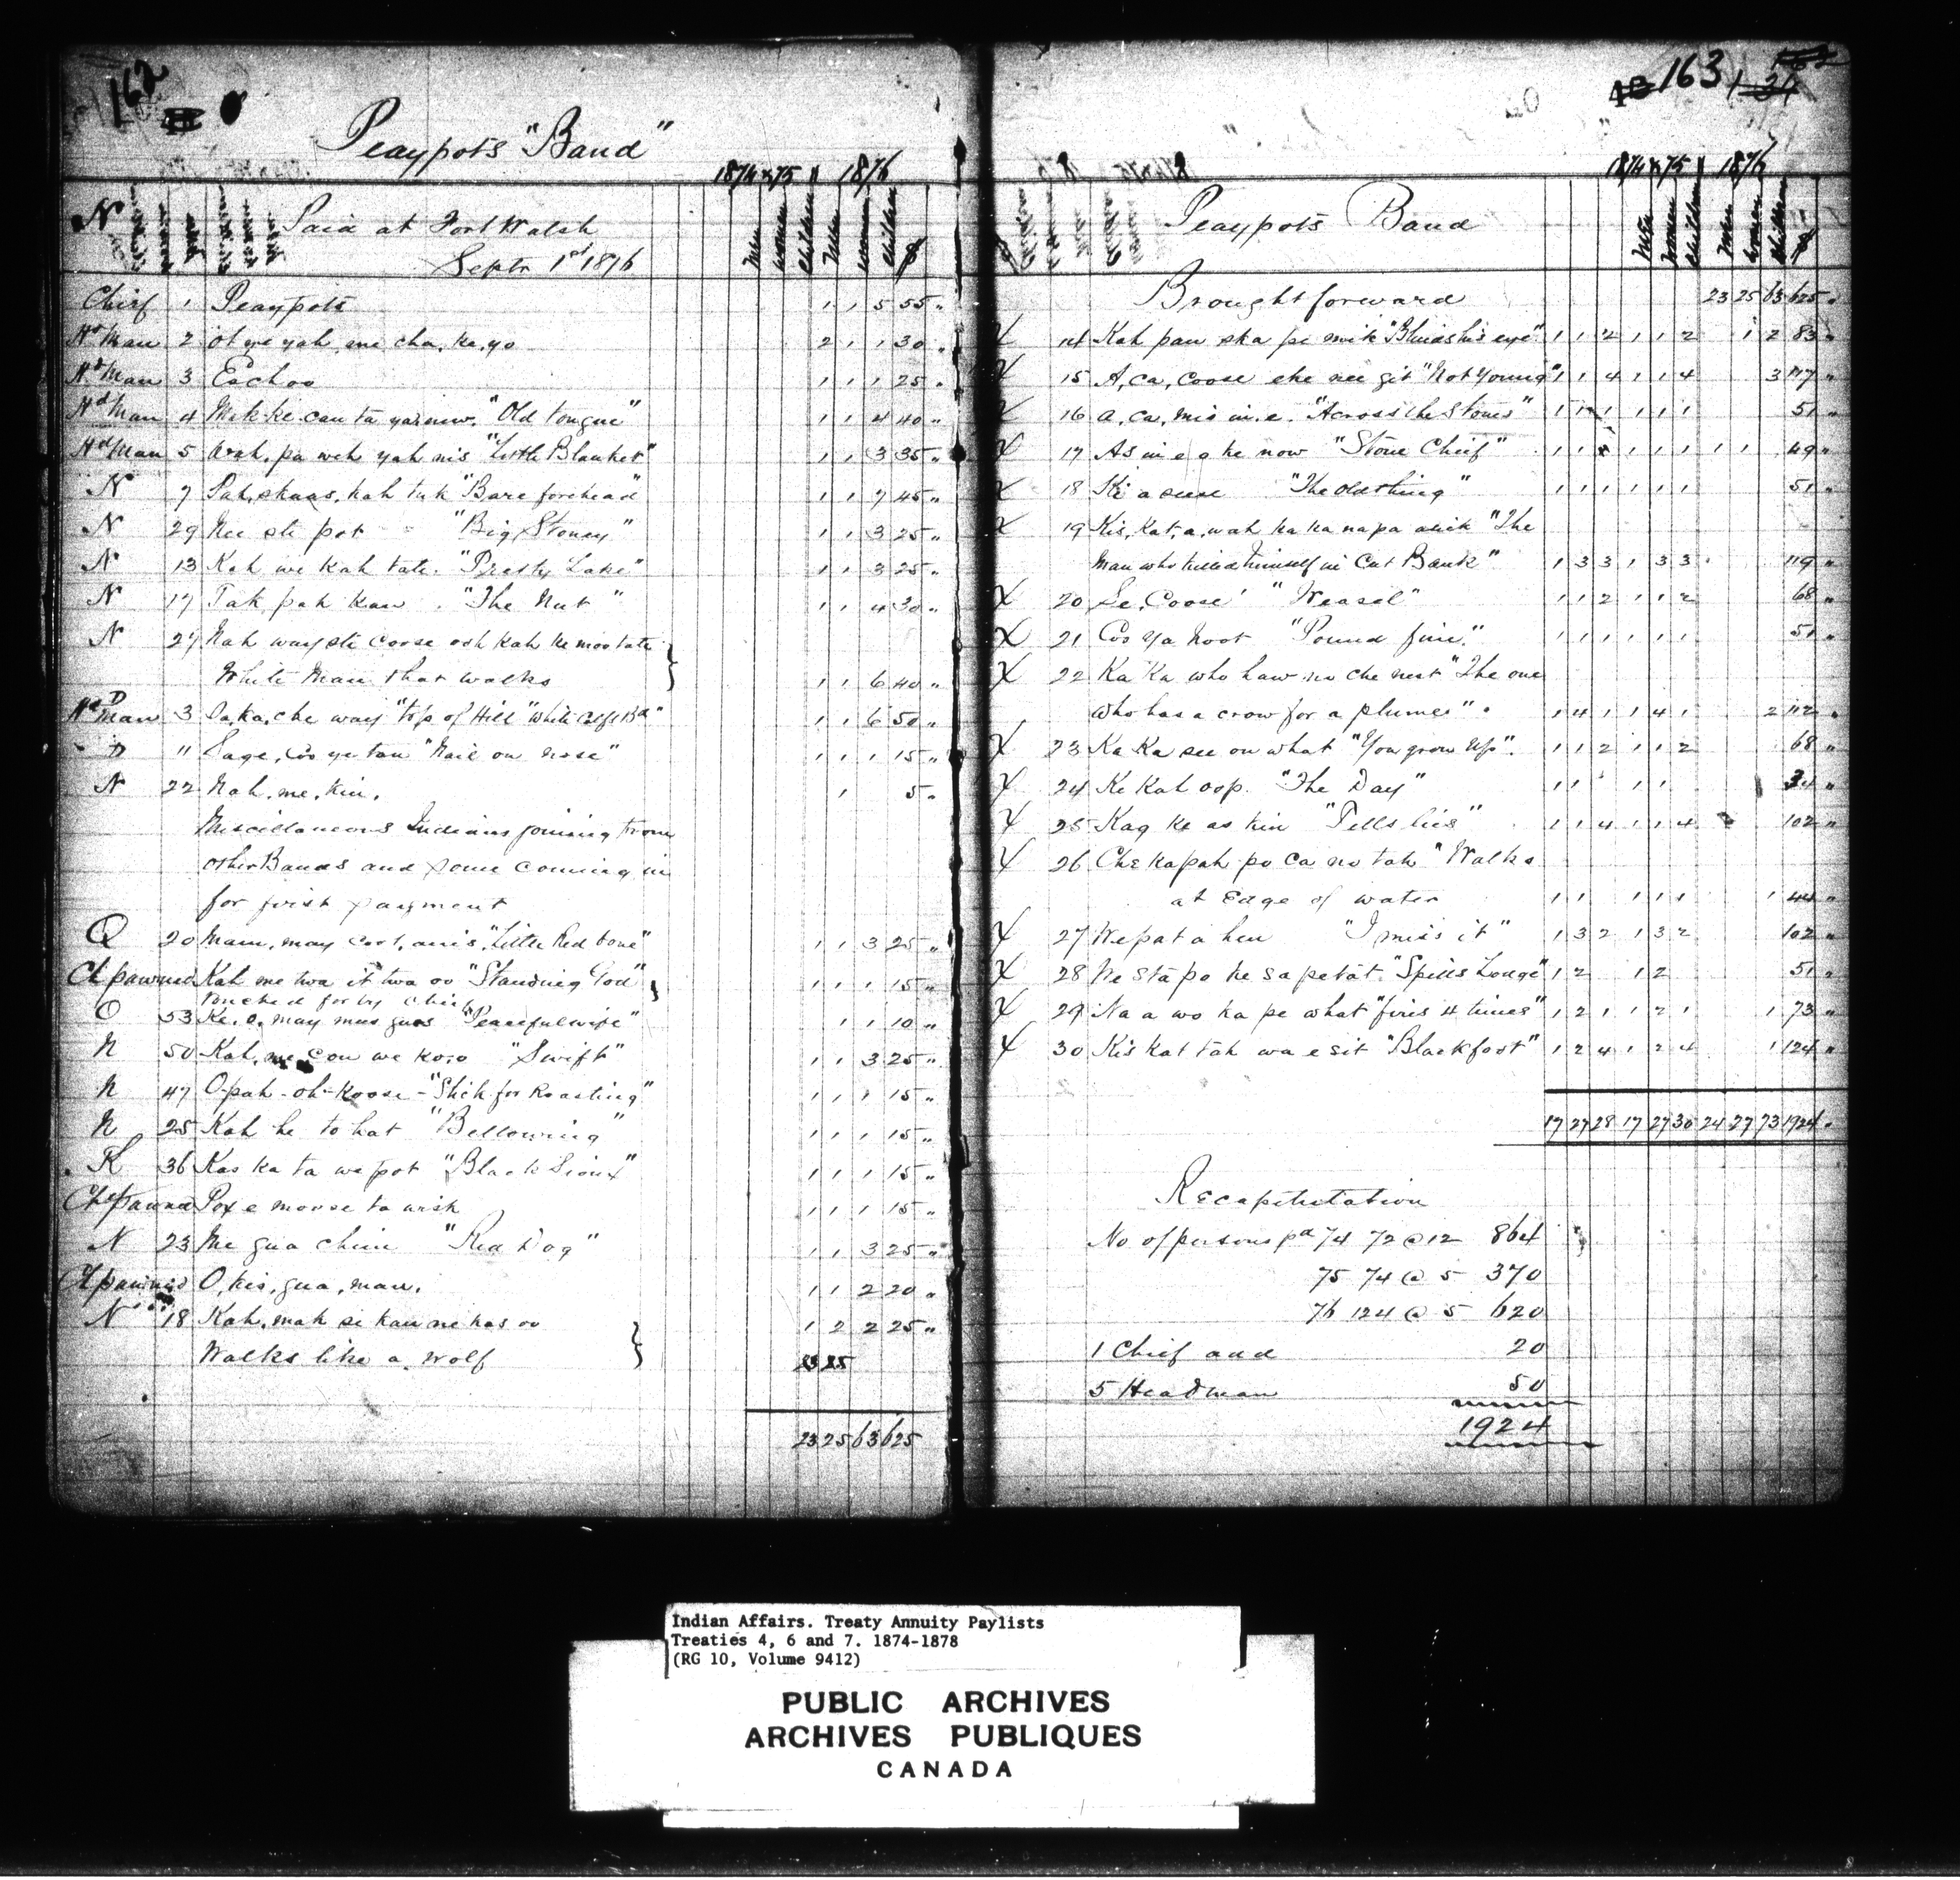 162
Peaypots "Band"
1874 & 75 " 1876
N
Paid at Fort Walsh
Septr 1st 1876
Men Women Children Men Women Children $
Chief 1 Peaypots 1 1 5 55 "
Hd Man 2 2 1 1 30 "
Hd Man 3 Eschoo 1 1 1 25 "
Hd Man 4 "Old tongue" 1 1 4 40 "
Hd Man 5 "Little Blanket" 1 1 3 35 "
N 7 "Bare forehead" 1 1 7 45 "
N 29 Nee ste pot "Big Stoney" 1 1 3 25 "
N 13 Kah we kah tate. "Pretty Lake" 1 1 3 25 "
N 17 Tak pah kaw. "The Nut" 1 1 4 30 "
N 27 Nah way ste coose osh kah ke moo tate
White Man that walks 1 1 6 40 "
Hd Man 3 Sa, ka, che way "top of Hill" 1 1 6 50 "
" "Nail on nose" 1 1 1 15 "
N 22 Nah, me, kin, 1 5 "
Miscellaneous Indians joining from
other Bands and some coming in
for first payment
Q 20 "Little Red bone" 1 1 3 25 "
Kah me twa it twa oo "Standing God" 1 1 1 15 "
touched for by Chief
O 53 "Peaceful wife" 1 1 10 "
N 50 "Swift" 1 1 3 25 "
N 47 O-pah-oh-koose - "Stick for Roasting" 1 1 1 15 "
N 25 Kah he to hat "Bellowing" 1 1 1 15 "
K 36 Kas ka ta we pot "Black Sioux" 1 1 1 15 "
Pox e moose ta wish 1 1 1 15 "
N 23 Me gua chim "Red Dog" 1 1 3 25 "
O, kis, gua, maw. 1 1 2 20 "
N 18 Kah, mah se kaw ne kas oo 1 2 2 25 "
Walks like a wolf
23 25
23 25 63 625
163
1874 & 75 1876
Peaypots Band
Men Women Children Men Women Children $
Brought forward 23 25 63 625 "
X 14 Kah paw ska pe smik "Blinds his eye" 1 1 2 1 1 2 1 2 83 "
X 15 A, ca, coose eke nee git "Not Young" 1 1 4 1 1 4 3 117 "
X 16 a, ca, mis in. e. "Across the Stones" 1 1 1 1 1 1 51 "
X 17 As in e o ke now "Stone Chief" 1 1 1 1 1 1 1 49 "
X 18 Ke a sense "The old thing" 1 1 1 1 1 1 51 "
X 19 Kis, Kat, a, wah ka ka na pa asik "The
Man who killed himself in Cut Bank" 1 3 3 1 3 3 119 "
X 20 Se, Coose' "Weasel" 1 1 2 1 1 2 68 "
X 21 Cos Ya hoot 1 1 1 1 1 1 51 "
X 22 Ka Ka who haw no che nest "The one
who has a crow for a plumes" 1 4 1 1 4 1 2 112 "
X 23 Ka Ka see on what "You grow Up". 1 1 2 1 1 2 68 "
X 24 Ke Kah oop. "The Day" 1 1 1 1 34 "
X 25 Kag ke as kin "Tells lies" 1 1 4 1 1 4 102 "
X 26 Che ka pah po ca no tah "Walks
at Edge of water 1 1 1 1 1 1 44 "
X 27 We pat a hen "I miss it" 1 3 2 1 3 2 102 "
X 28 Ne sta po ke sa pe tat. 1 2 1 2 51 "
X 29 Na a wo ka pe what "fires 4 times" 1 2 1 1 2 1 1 73 "
X 30 Kis kat tah wa e sit "Blackfoot" 1 2 4 1 2 4 1 124 "
17 27 28 17 27 30 24 27 73 1924 "
Recapitulation
No of persons pd 74 72 @ 12 864
75 74 @ 5 370
76 124 @ 5 620
1 Chief and 20
5 Headman 50
1924
Indian Affairs. Treaty Annuity Paylists
Treaties 4, 6 and 7. 1874-1878
(RG 10, Volume 9412)
PUBLIC ARCHIVES
ARCHIVES PUBLIQUES
CANADA